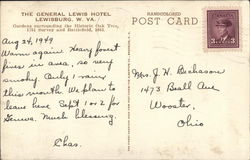 THE GENERAL LEWIS HOTEL
LEWISBURG, W. VA.
Gardens surrounding the Historic Oak Tree,
1751 Survey and Battlefield, 1862.
POST CARD
Aug 24, 1949
Warm again. Heavy forest
fires in area, so very
smoky. Only 1 rain
this month. We plan to
leave here Sept 1 or 2 for
Genoa. Much blessing.
Chas.
Mrs. J. H. Dickason
1473 Beall Ave
Wooster,
Ohio
3 3